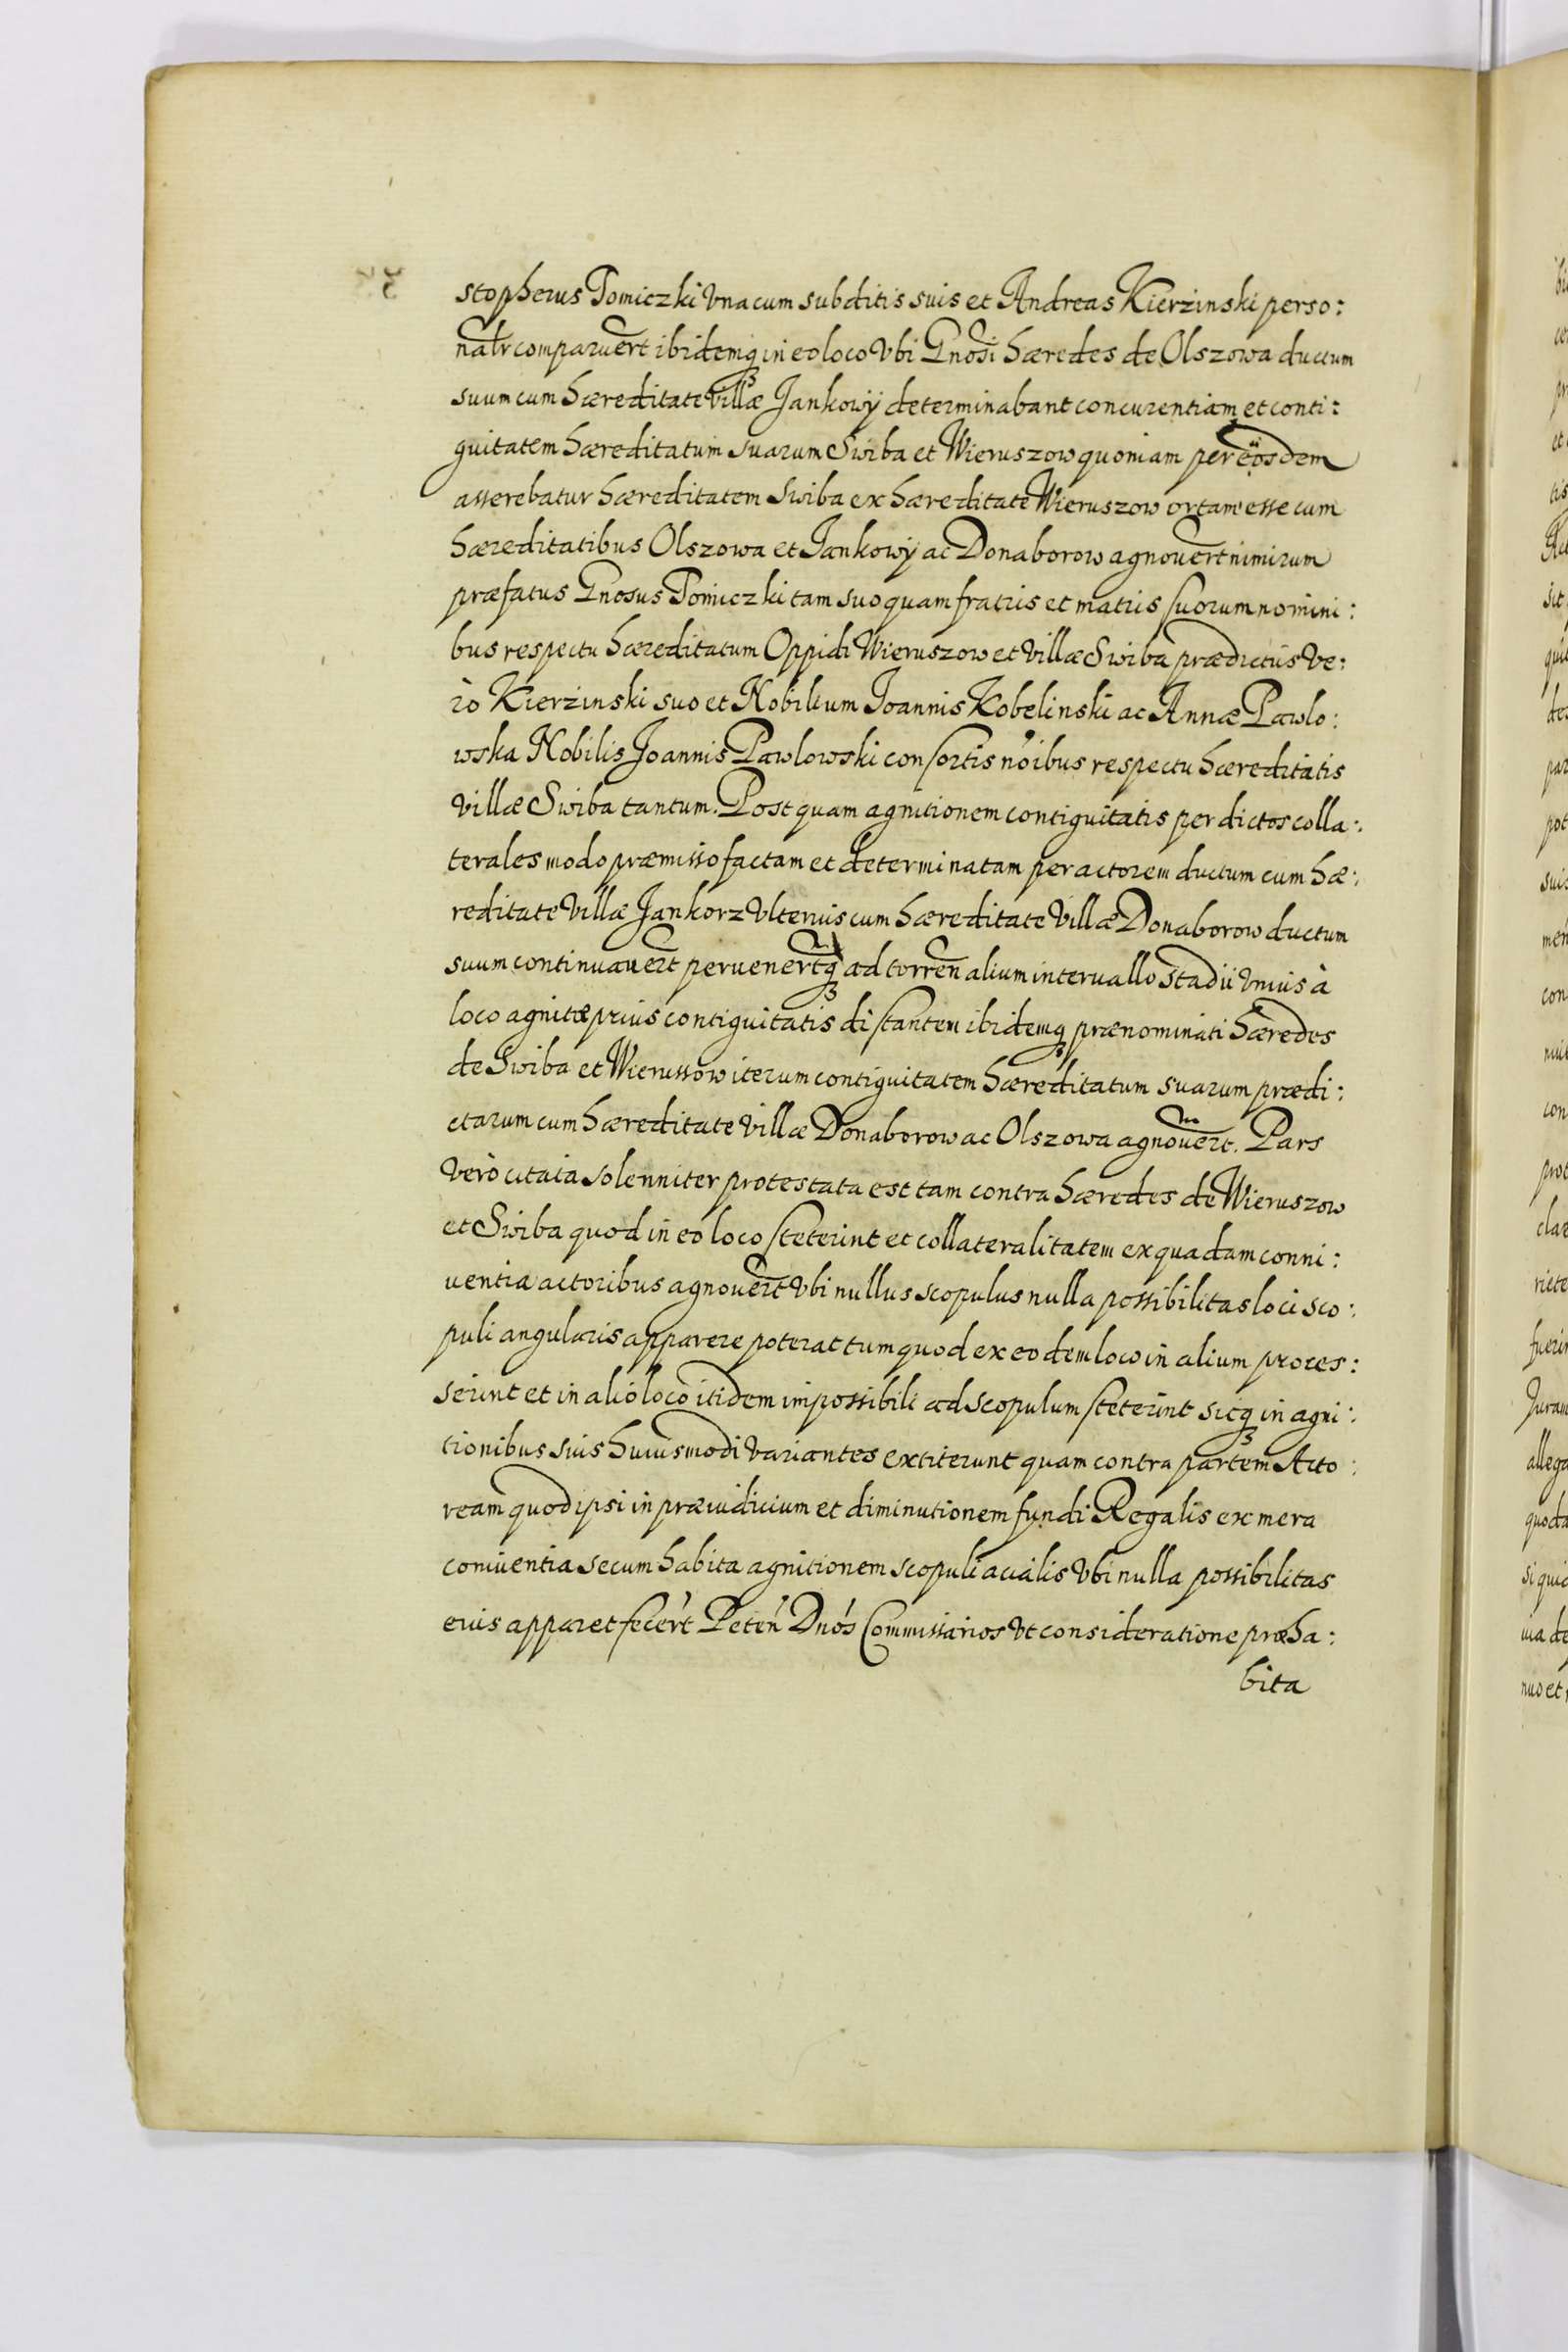 stopherus Tomiczki vna cum subditis suis et Andreas Kierzinski perso:
nalr comparuert ibidemq in eo loco vbi Gnosi hæredes de Olszowa ductum
suum cum hæreditate villæ Jankowÿ determinabant concurentiam et conti:
guitatem hæreditatum suarum Swiba et Wieruszow quoniam per eosdem
asserebatur hæreditatem Swiba ex hæreditate Wieruszow ortam esse cum
hæreditatibus Olszowa et Jankowÿ ac Donaborow agnouert nimirum
præfatus Gnosus Tomiczki tam suo quam fratris et matris suorum nomini:
bus respectu hæreditatum Oppidi Wieruszow et villæ Swiba prædictus ve:
rò Kierzinski suo et Nobilium Joannis Kobelinski ac Annæ Pawlo:
wska Nobilis Joannis Pawlowski consortis noibus respectu hæreditatis
villæ Swiba tantum. Post quam agnitionem contiguitatis per dictos colla:
terales modo præmisso factam et determinatam per actorem ductum cum hæ:
reditate villæ Jankorz vlterius cum hæreditate villæ Donaborow ductum
suum continuauert peruenertq ad torren alium interuallo stadii vnius à
loco agnitæ prius contiguitatis distantem ibidemq prænominati hæredes
de Swiba et Wierussow iterum contiguitatem hæreditatum suarum prædi:
ctarum cum hæreditate villæ Donaborow ac Olszowa agnouert. Pars
verò citata solenniter protestata est tam contra hæredes de Wieruszow
et Swiba quod in eo loco steterint et collateralitatem ex quadam conni:
uentia actoribus agnouert vbi nullus scopulus nulla possibilitas loci sco:
puli angularis apparere poterat tum quod ex eodem loco in alium proces:
serint et in alio loco itidem impossibili ad scopulum steterint sicq in agni:
tionibus suis huiusmodi variantes extiterunt quam contra partem Acto:
ream quod ipsi in præiudicium et diminutionem fundi Regalis ex mera
coniuentia secum habita agnitionem scopuli acialis vbi nulla possibilitas
eius apparet fecert Peten Dnos Commissarios vt consideratione præha:
bita